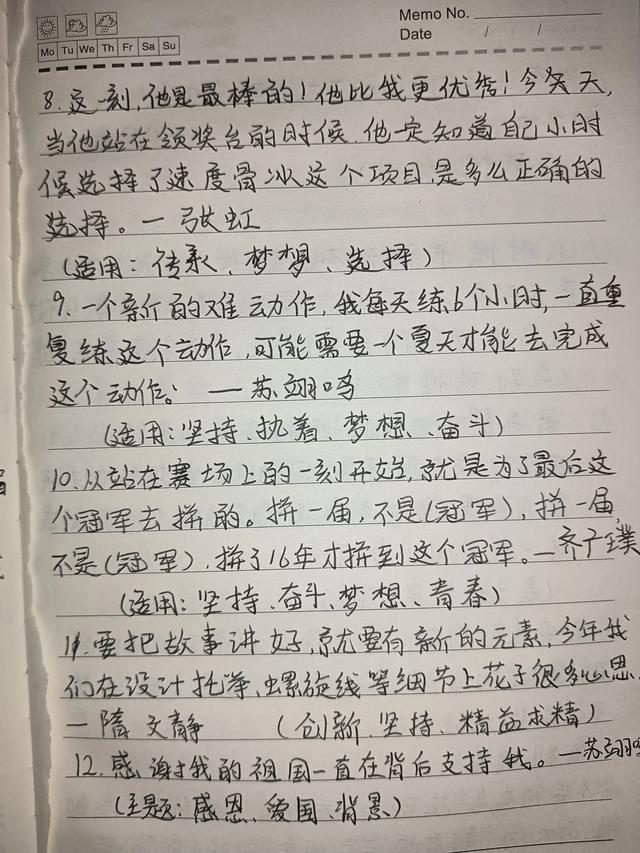 Memo No.
Date / /
Mo Tu We Th Fr Sa Su
8. 这一刻,他是最棒的!他比我更优秀!今天,
当他站在领奖台的时候,他一定知道自己小时
候选择了速度滑冰这个项目,是多么正确的
选择。一张虹
(适用:传承、梦想、选择)
9. 一个新的难动作,我每天练6个小时,一直重
复练这个动作,可能需要一个夏天才能去完成
这个动作。 —苏翊鸣
(适用:坚持、执着、梦想、奋斗)
10. 从站在赛场上的一刻开始,就是为了最后这
个冠军去拼的。拼一届,不是(冠军),拼一届,
不是(冠军),拼了16年才拼到这个冠军。—齐广璞
(适用:坚持、奋斗、梦想、青春)
11. 要把故事讲好,就要有新的元素,今年我
们在设计托举、螺旋线等细节上花了很多心思。
— 隋文静 (创新、坚持、精益求精)
12. 感谢我的祖国一直在背后支持我。—苏翊鸣
(主题:感恩、爱国、背景)